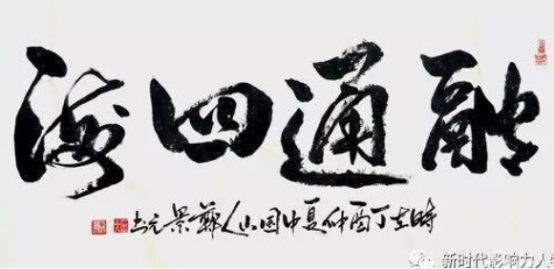 融通四海
時在丁酉仲夏中国山人景元书
新时代影响力人